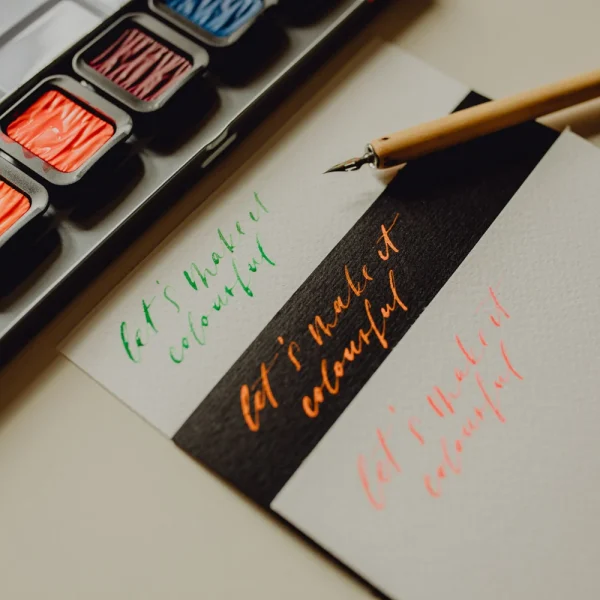 let's make it
colourful
let's make it
colourful
let's make it
colourful